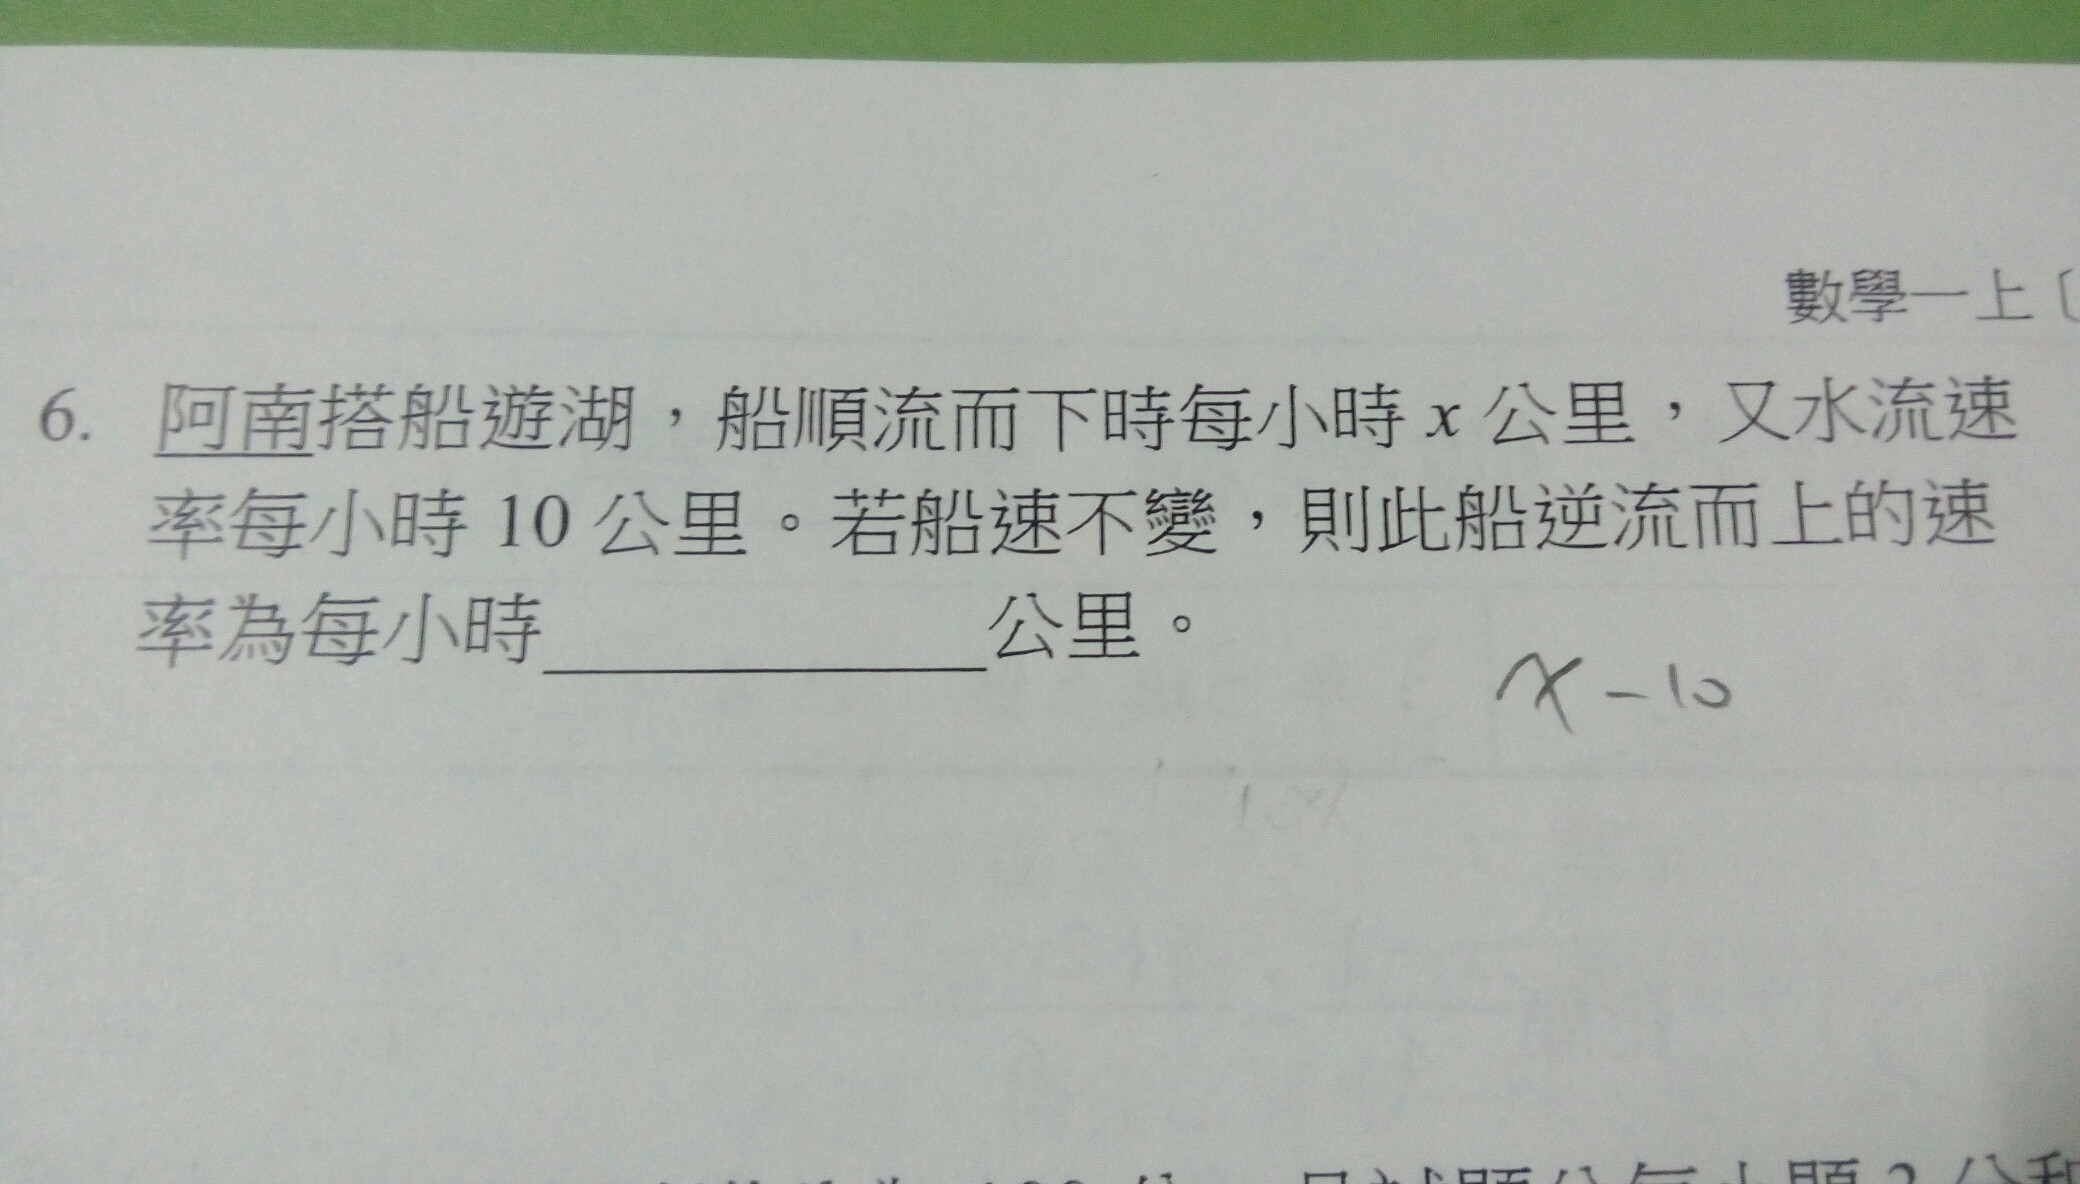 數學一上〔
6. 阿南搭船遊湖，船順流而下時每小時 x 公里，又水流速
率每小時 10 公里。若船速不變，則此船逆流而上的速
率為每小時__________公里。
x-10